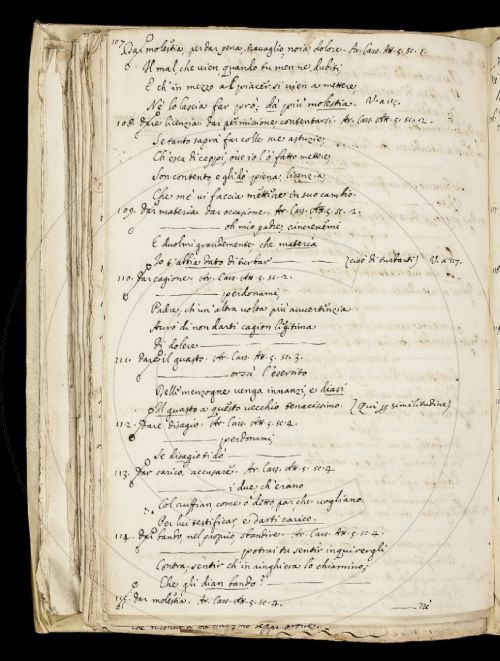 107. Dar molestia, per dar pena, travaglio, noia, dolore. Ar. Cass. Att. 5. sc. 1.
Il mal, che vien quando tu men ne dubiti,
E ch' in mezzo al piacer si vien a mettere
Nè lo lascia far prò, dà più molestia. V. a 115.
108. Dare licenzia. dar permissione, contentarsi. Ar. Cass. Att. 5. sc. 2.
Se tanto saprà far colle sue astuzie,
Ch' esca di ceppi, ove io l' ò fatto mettere,
Son contento, e gli dò piena licenzia
Che mè vi faccia mettere in suo cambio.
109. Dar materia. dar occasione. Ar. Cass. Att. 5. sc. 2.
oh mio padre, increscemi
E duolmi grandemente che materia
Io t' abbia dato di (cioè di turbarti) V. a 117.
110. Dar cagione. Ar. Cass. Att. 5. sc. 2.
perdonami,
Padre, ch' un' altra volta più avvertenzia
Averò di non darti cagion legitima
Di dolere
111. Dare il guasto. Ar. Cass. Att. 5. sc. 3.
orsù l' esercito
Delle menzogne venga innanzi, e diasi
Il guasto a questo vecchio tenacissimo. (Qui similitudine)
112. Dare disagio. Ar. Cass. Att. 5. sc. 4.
perdonami,
Se disagio ti dò
113. Dar carico, accusare. Ar. Cass. Att. 5. sc. 4
i due ch' erano
Col ruffian, come ò detto, par che vogliano
Per lui testificar, e darti carico.
114. Dar bando, nel proprio Ar. Cass. Att. 5. sc. 4.
potrai tu sentir
Contra, sentir ch' in ringhiera lo chiamino,
Che gli dian bando?
115. Dar molestia. Ar. Cass. Att. 5. sc. 4.
Nè